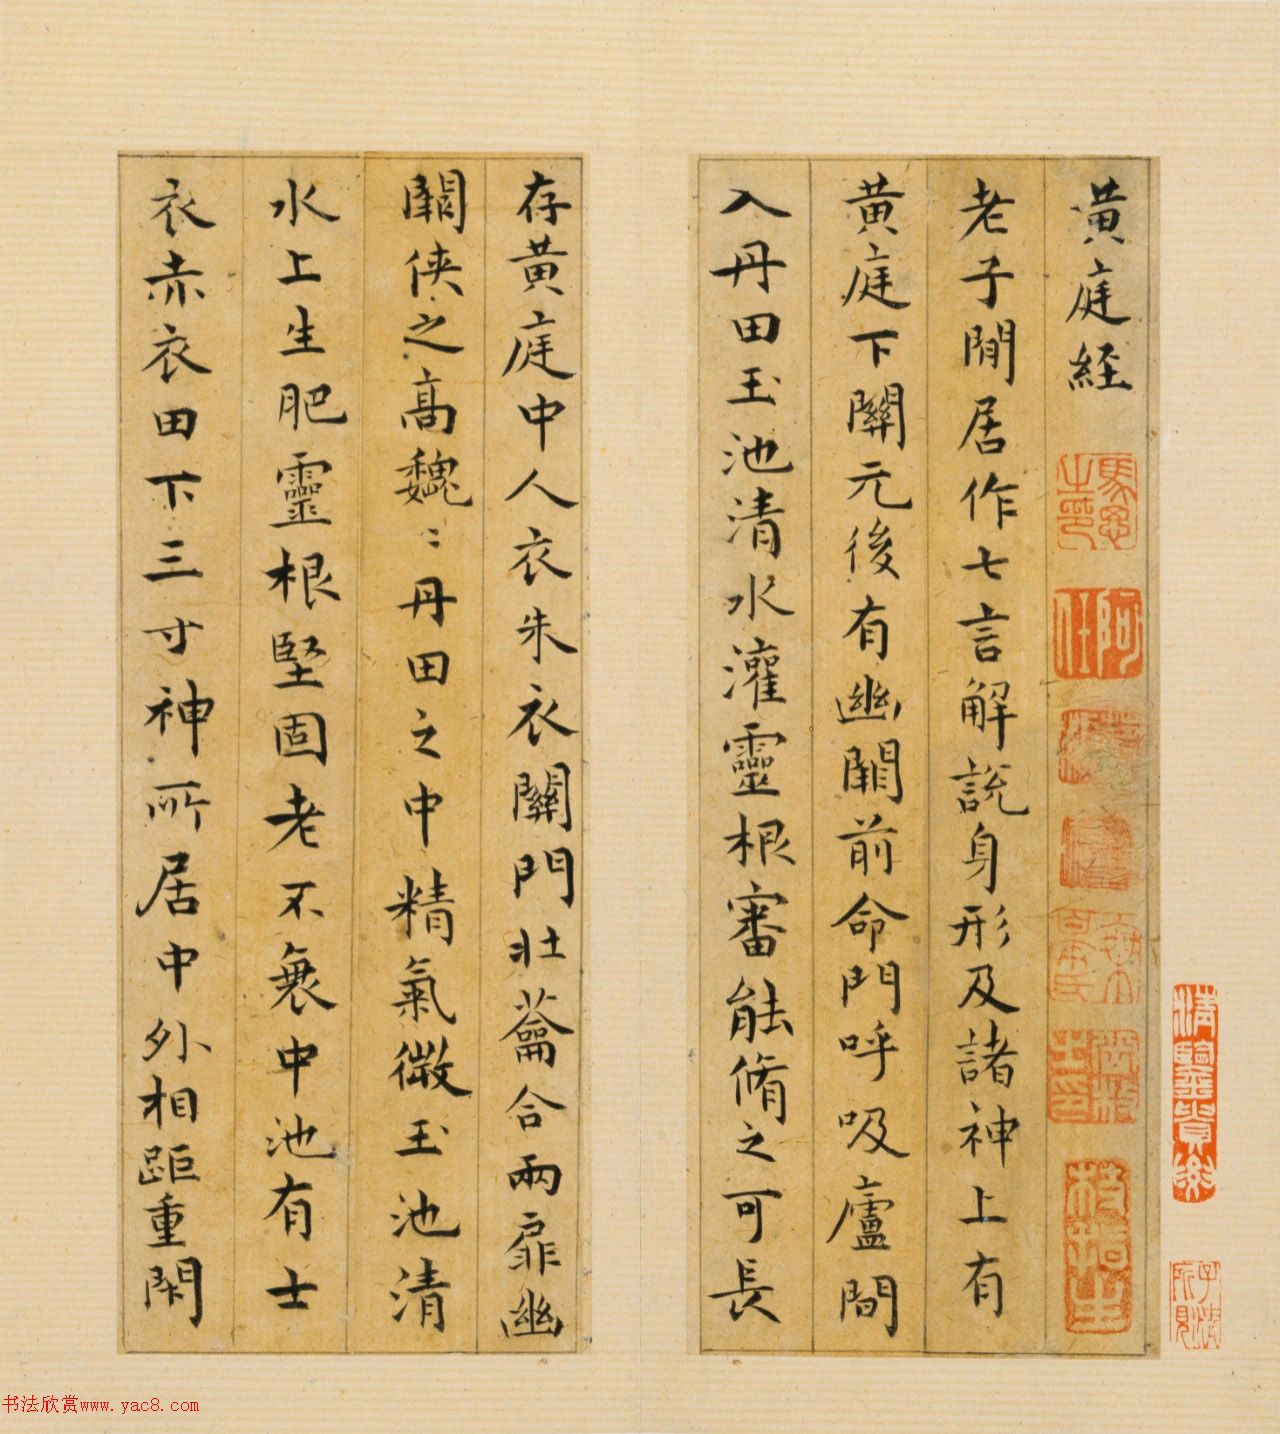 黃庭經
老子閒居作七言解說身形及諸神上有
黃庭下關元後有幽闕前命門呼吸廬間
入丹田玉池清水灌靈根審能脩之可長
存黃庭中人衣朱衣關門壯蘥合兩扉幽
闕俠之高魏〻丹田之中精氣微玉池清
水上生肥靈根堅固老不衰中池有士
衣赤衣田下三寸神所居中外相距重閇
清鑒賞珍
书法欣赏www.yac8.com